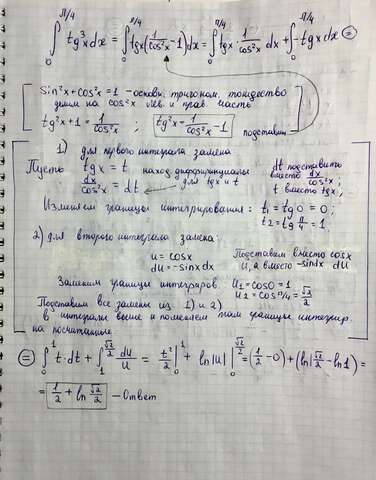 ∫₀^{π/4} tg³x dx = ∫₀^{π/4} tgx (1/cos²x − 1) dx = ∫₀^{π/4} tgx · 1/cos²x dx + ∫₀^{π/4} −tgx dx =
sin²x + cos²x = 1 – основн. тригоном. тождество
делим на cos²x лев. и прав. часть
tg²x + 1 = 1/cos²x ; tg²x = 1/cos²x − 1 подставим
1) для первого интеграла замена
Пусть tgx = t наход. дифференциалы для tgx и t
dx/cos²x = dt
dt подставить вместо dx/cos²x ;
t вместо tgx ;
Изменяем границы интегрирования : t₁ = tg0 = 0 ;
t₂ = tg π/4 = 1
2) для второго интеграла замена :
u = cosx Подставим вместо cosx
du = −sinx dx u, а вместо −sinx dx du
Заменим границы интегриров. u₁ = cos0 = 1
u₂ = cos π/4 = √2/2
Подставим все замены из 1) и 2)
в интегралы выше и поменяем там границы интегрир.
на посчитанные
= ∫₀¹ t·dt + ∫₁^{√2/2} du/u = t²/2 |₀¹ + ln|u| |₀^{√2/2} = (1/2 − 0) + (ln|√2/2| − ln1) =
= 1/2 + ln √2/2 – Ответ